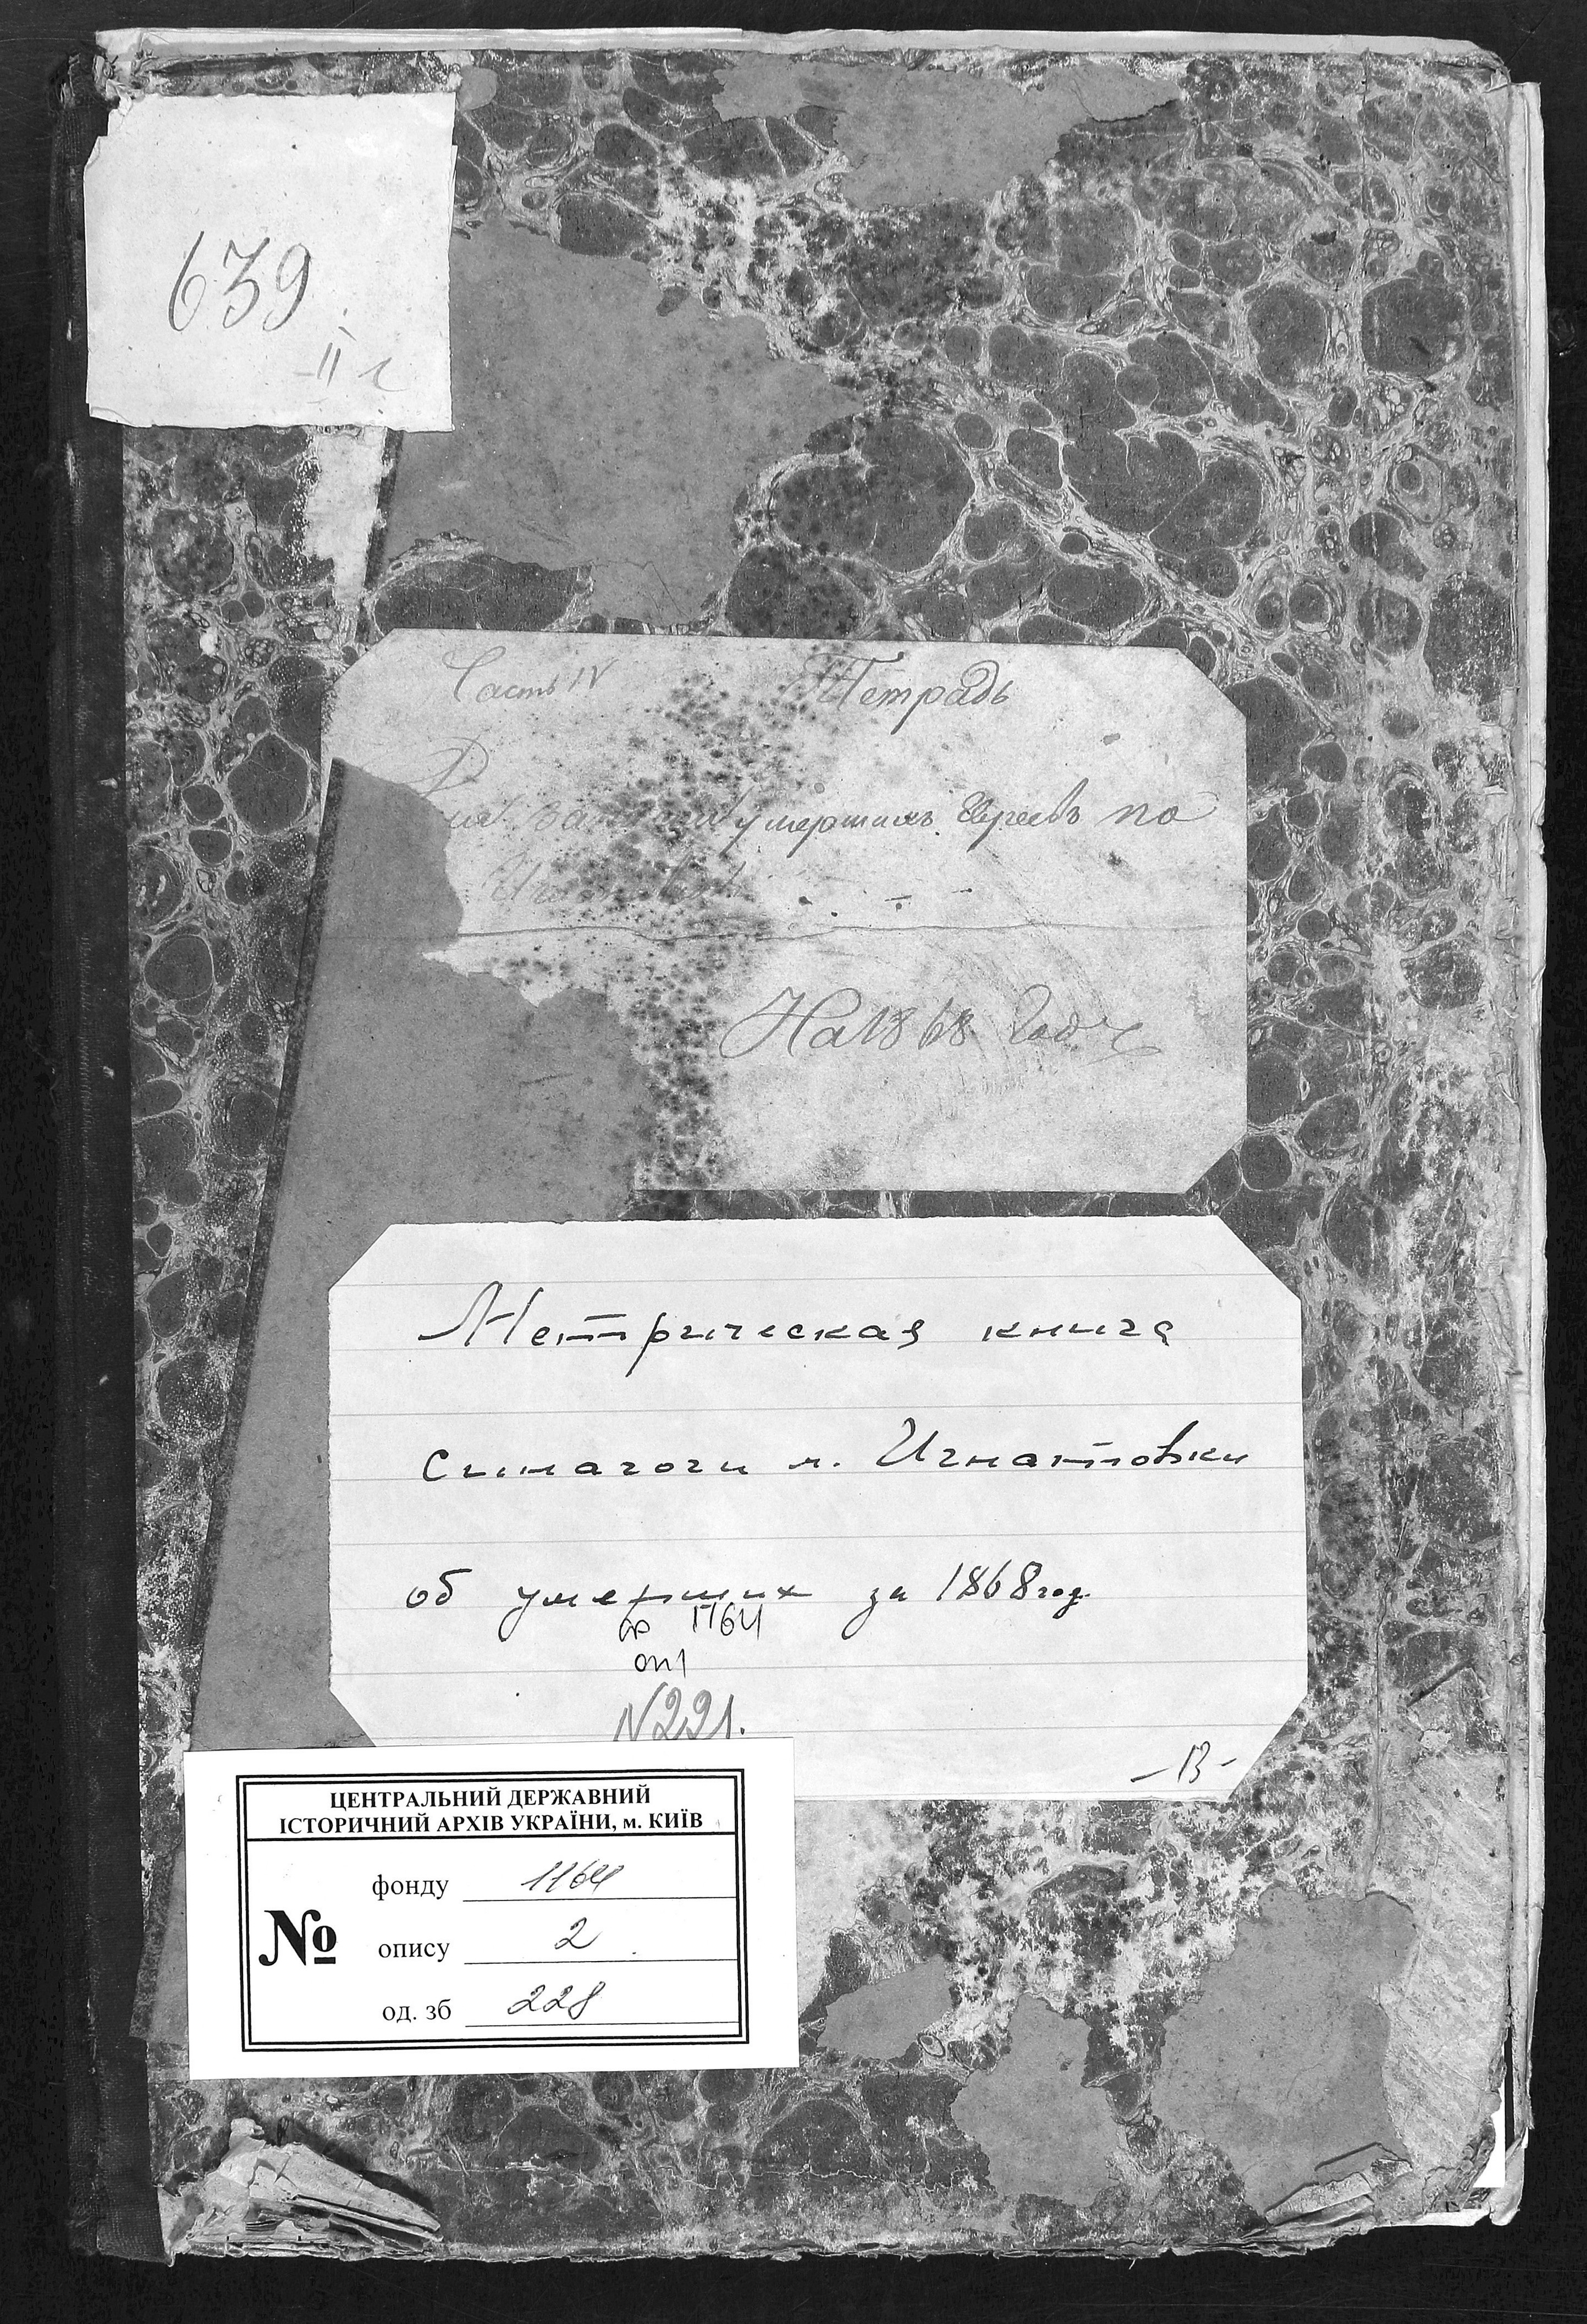 639
II
Часть IV Тетрадь
умершихъ Евреевъ по
На 1868 годъ
Метрическая книга
синагоги м. Игнатовки
об умерших за 1868 год.
ф 1164
оп1
N221.
- 13 -
ЦЕНТРАЛЬНИЙ ДЕРЖАВНИЙ
ІСТОРИЧНИЙ АРХІВ УКРАЇНИ, м. КИЇВ
фонду 1164
№ опису 2
од. зб 228